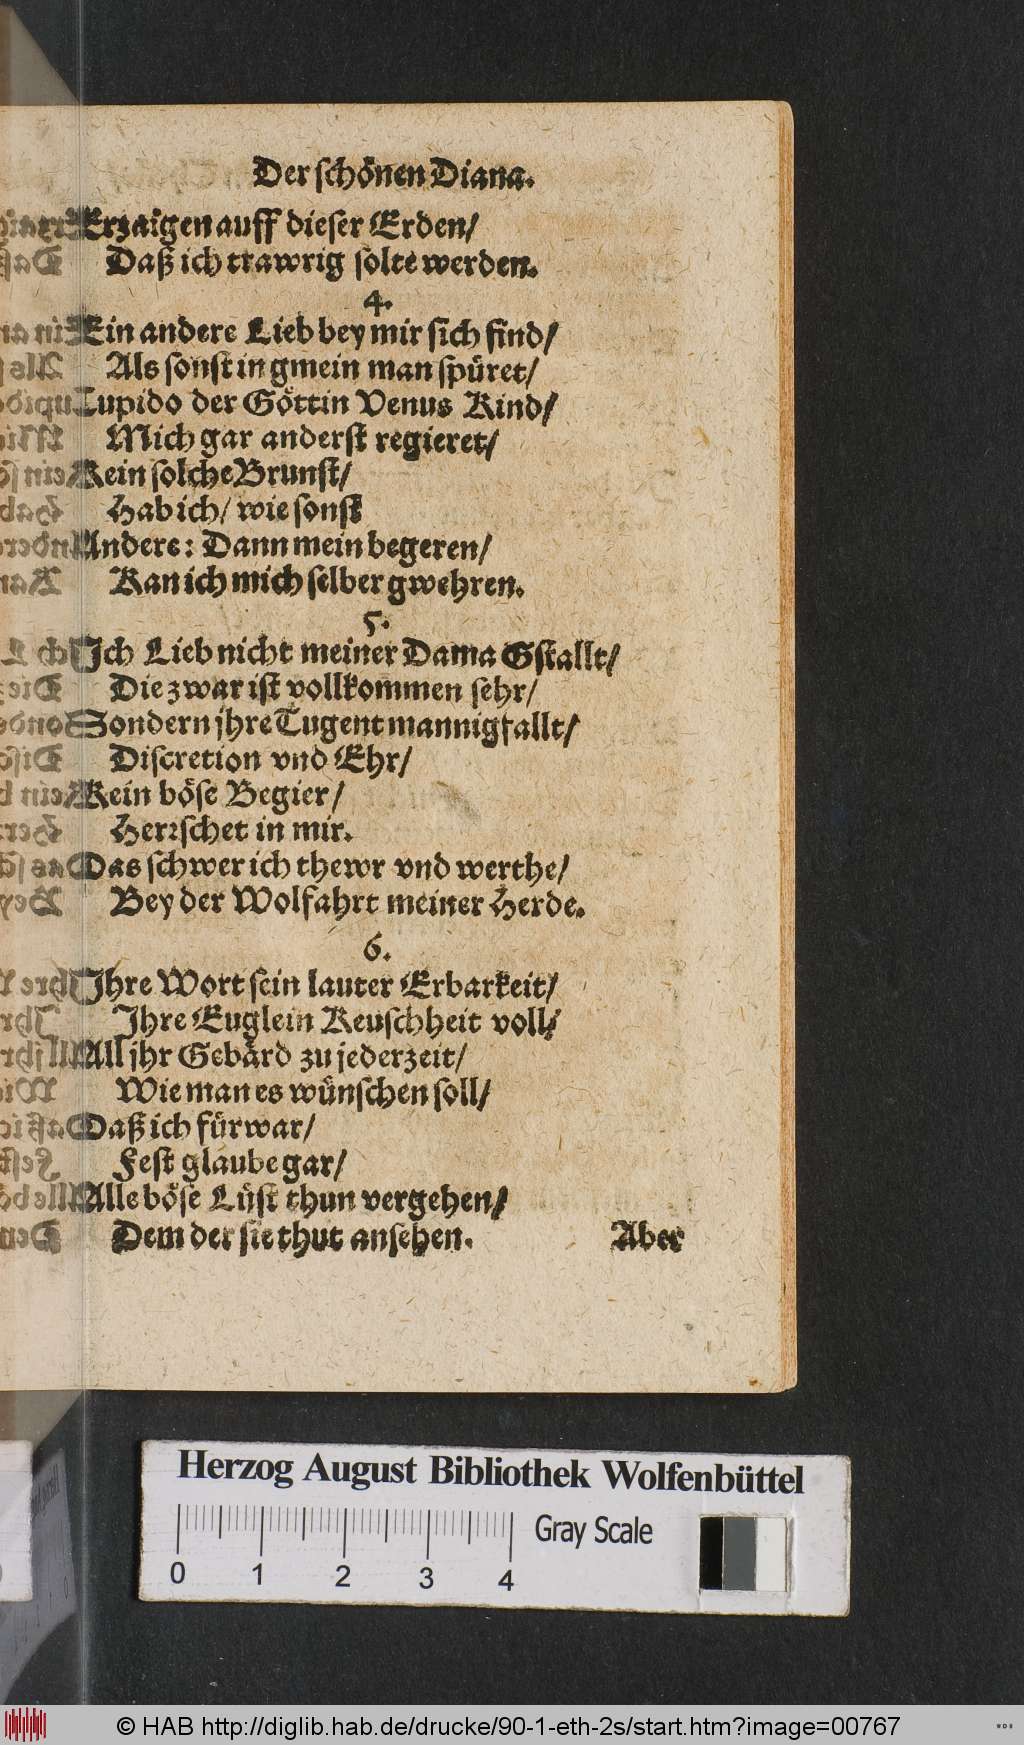 Der schönen Diana.
Erzaigen auff dieser Erden/
Daß ich trawrig solte werden.
4.
Ein andere Lieb bey mir sich find/
Als sonst in gmein man spüret/
Cupido der Göttin Venus Kind/
Mich gar anderst regieret/
Kein solche Brunst/
Hab ich/ wie sonst
Andere: Dann mein begeren/
Kan ich mich selber gwehren.
5.
Ich Lieb nicht meiner Dama Gstallt/
Die zwar ist vollkommen sehr/
Sondern jhre Tugent mannigfallt/
Discretion vnd Ehr/
Kein böse Begier/
Herrschet in mir.
Das schwer ich thewr vnd werthe/
Bey der Wolfahrt meiner Herde.
6.
Ihre Wort sein lauter Erbarkeit/
Ihre Euglein Keuschheit voll/
All jhr Gebärd zu jederzeit/
Wie man es wünschen soll/
Daß ich fürwar/
Fest glaube gar/
Alle böse Lüst thun vergehen/
Dem der sie thut ansehen.
Aber
Herzog August Bibliothek Wolfenbüttel
Gray Scale
0 1 2 3 4
© HAB http://diglib.hab.de/drucke/90-1-eth-2s/start.htm?image=00767